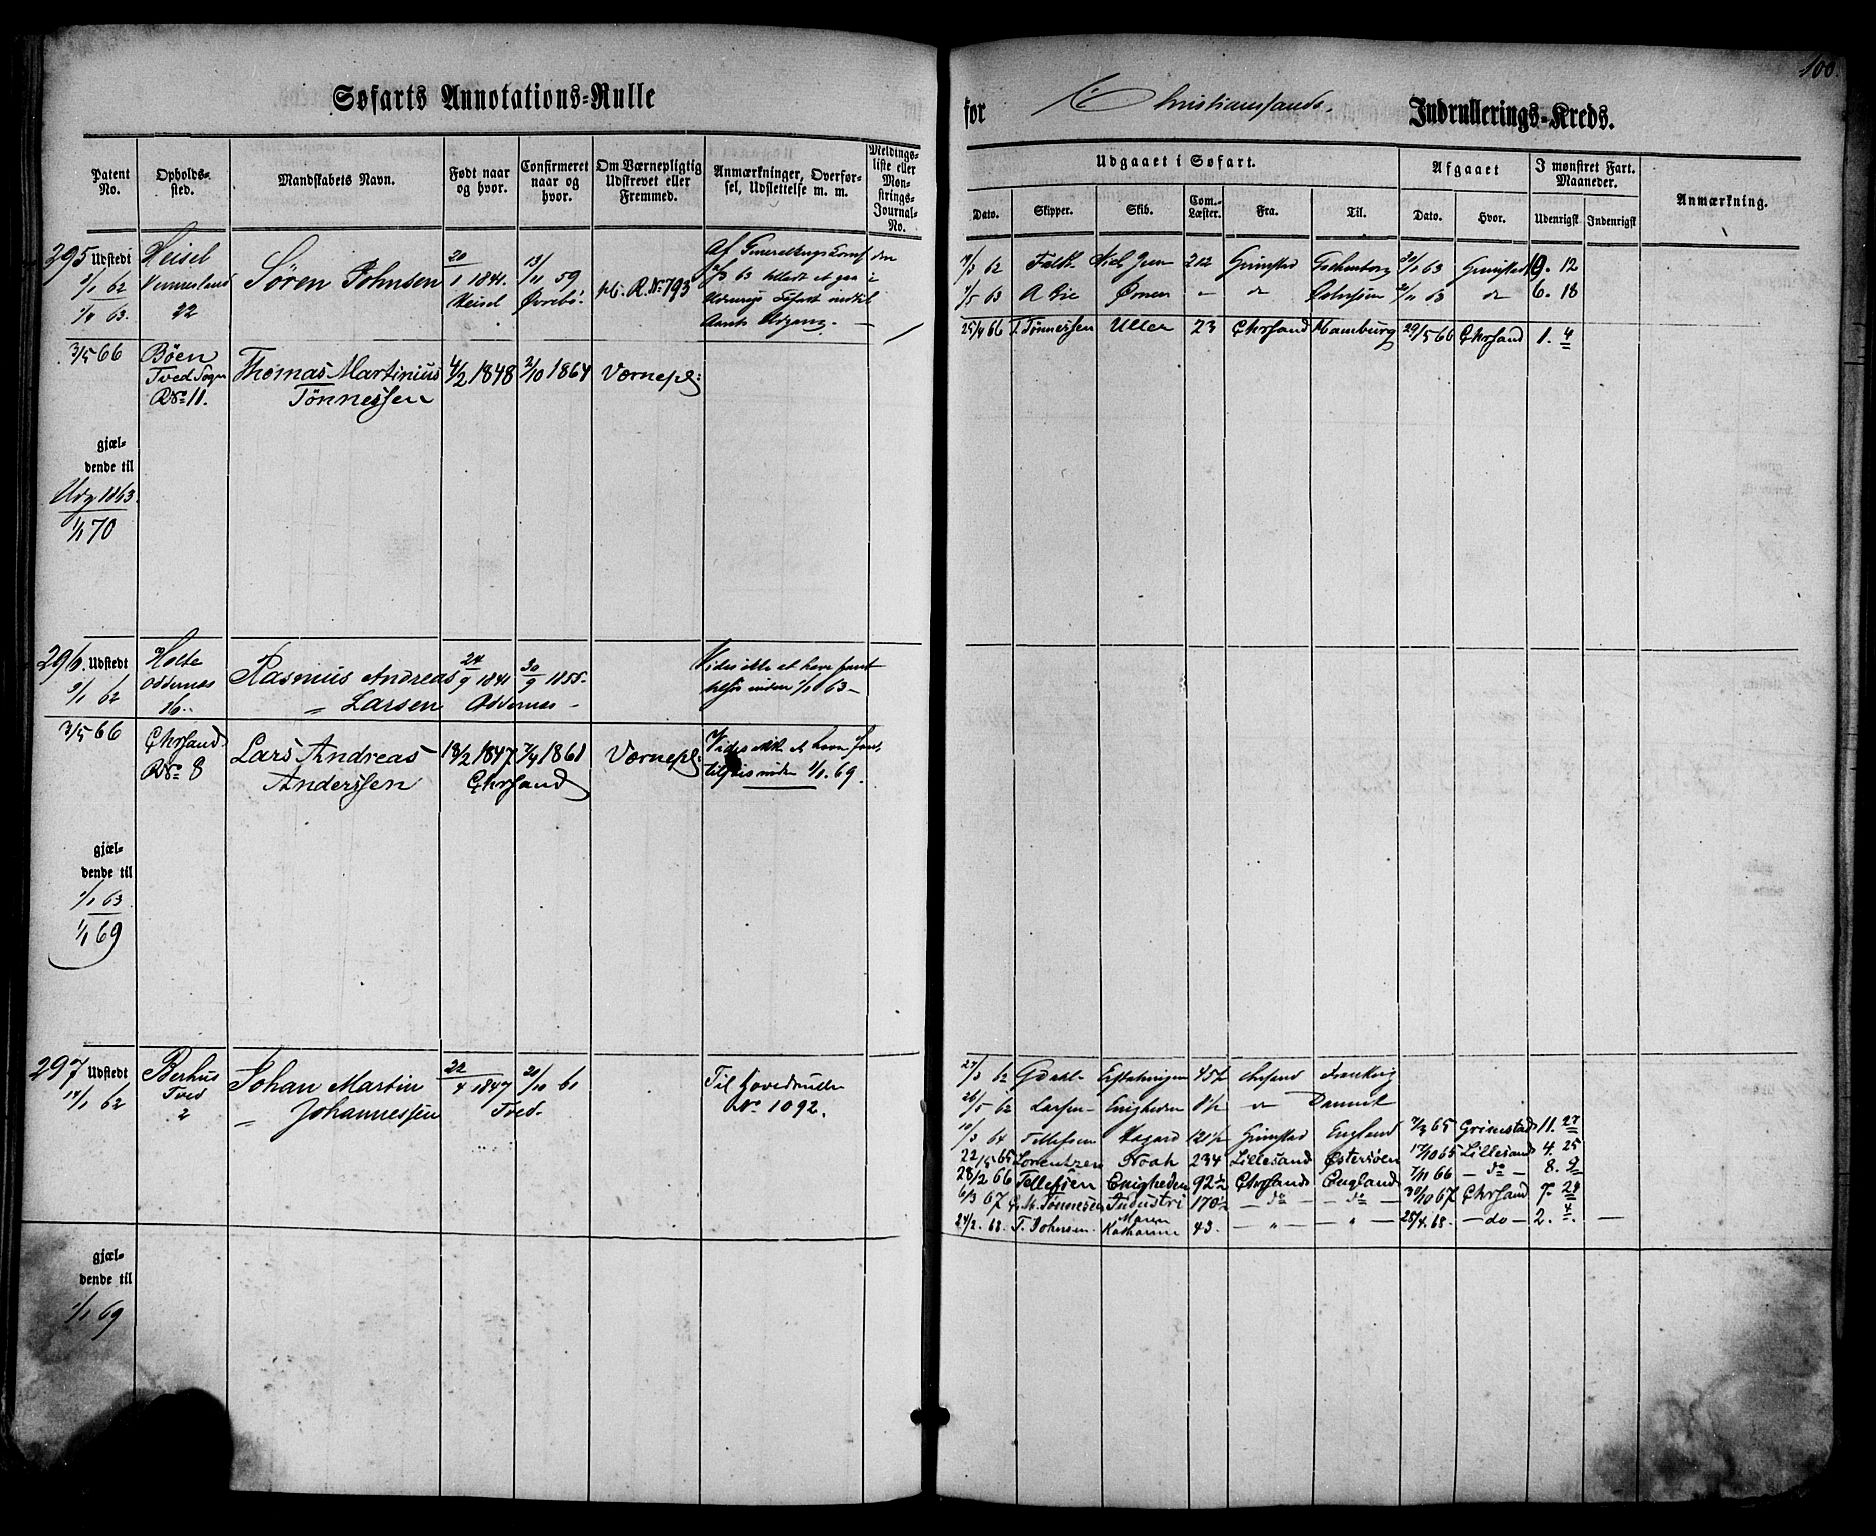 100.
Søfarts Annotations=Rulle
for Christianssands Indrullerings=Kreds.
Patent No.
Opholds-sted.
Mandskabets Navn.
Født naar og hvor.
Confirmeret naar og hvor.
Om Værnepligtig Udskrevet eller Fremmed.
Anmærkninger, Overførsel, Udslettelse m. m.
Meldings-liste eller Mønstrings-Journal-No.
Udgaaet i Søfart.
Afgaaet
I mønstret Fart. Maaneder.
Anmærkning.
Dato.
Skipper.
Skib.
Com. Læster.
Fra.
Til.
Dato.
Hvor.
Udenrigsk
Indenrigsk
295 Udstedt
2/1 62
1/1 63.
Heisel
Vennesland
22
Søren Johnsen
20/1 1841.
Heisel
13/11 59
Øvrebø.
R. No 793
63 tilladt at gaa i
7/3 62 Falk 212 Grimstad 63 Grimstad 10. 12
7/5 63 A Bie Ørnen " do 63 do 6. 18
25/4 66 T. Tønnessen Uller 23 Chrsand Hamburg 29/5 66 Chrsand 1. 4
3/5 66
Bøen
Tved Sogn
R No 11.
Thomas Martinius
Tønnessen
4/2 1848
2/10 1864
Værnepl:
gjæl-
dende til
Udg 1863.
1/1 70
296. Udstedt
9/1 62
Holte
Oddernæs
16.
Rasmus Andreas
" Larsen
24/9 1841
Oddernæs -
30/9 1855.
Vides ikke at have faret
tilsøs inden 1/1 63 -
3/5 66
Chrsand
R No 8
Lars Andreas
Anderssen
18/2 1847
7/4 1861
Chrsand
Værnepl:
Vides ikke at have faret
tilsøis inden 1/1. 69.
gjæl-
dende til
1/1 63
1/1 69
297 Udstedt
14/1 62
Berhus
Tved
2
Johan Martin
" Johannessen
22/4 1847
Tved.
20/10 61
Til Hovedrulle
No. 1092.
27/3 62 G Dahl Erstatningen 45½ Chrsand
26/5 62 Larsen Enigheden do Danmk
10/3 64 Tellefsen 121½ Grimstad England 7/3 65 Grimstad 11. 27
22/5 65 Lorentzen Noah 234 Lillesand Østersøen 17/10 65 Lillesand 4. 25
28/2 66 Tellefsen Enigheden 92½ Chrsand England 7/11 66 - do - 8. 9
6/3 67 G. M. Tønnesen Industri 170½ - do - - do - 30/10 67 Chrsand 7. 24
24/2. 68. T. Johnsen Maren Kathrine 43. - " - " - 28/4. 68. - do - 2. 4. -
gjæl-
dende til
1/1 69